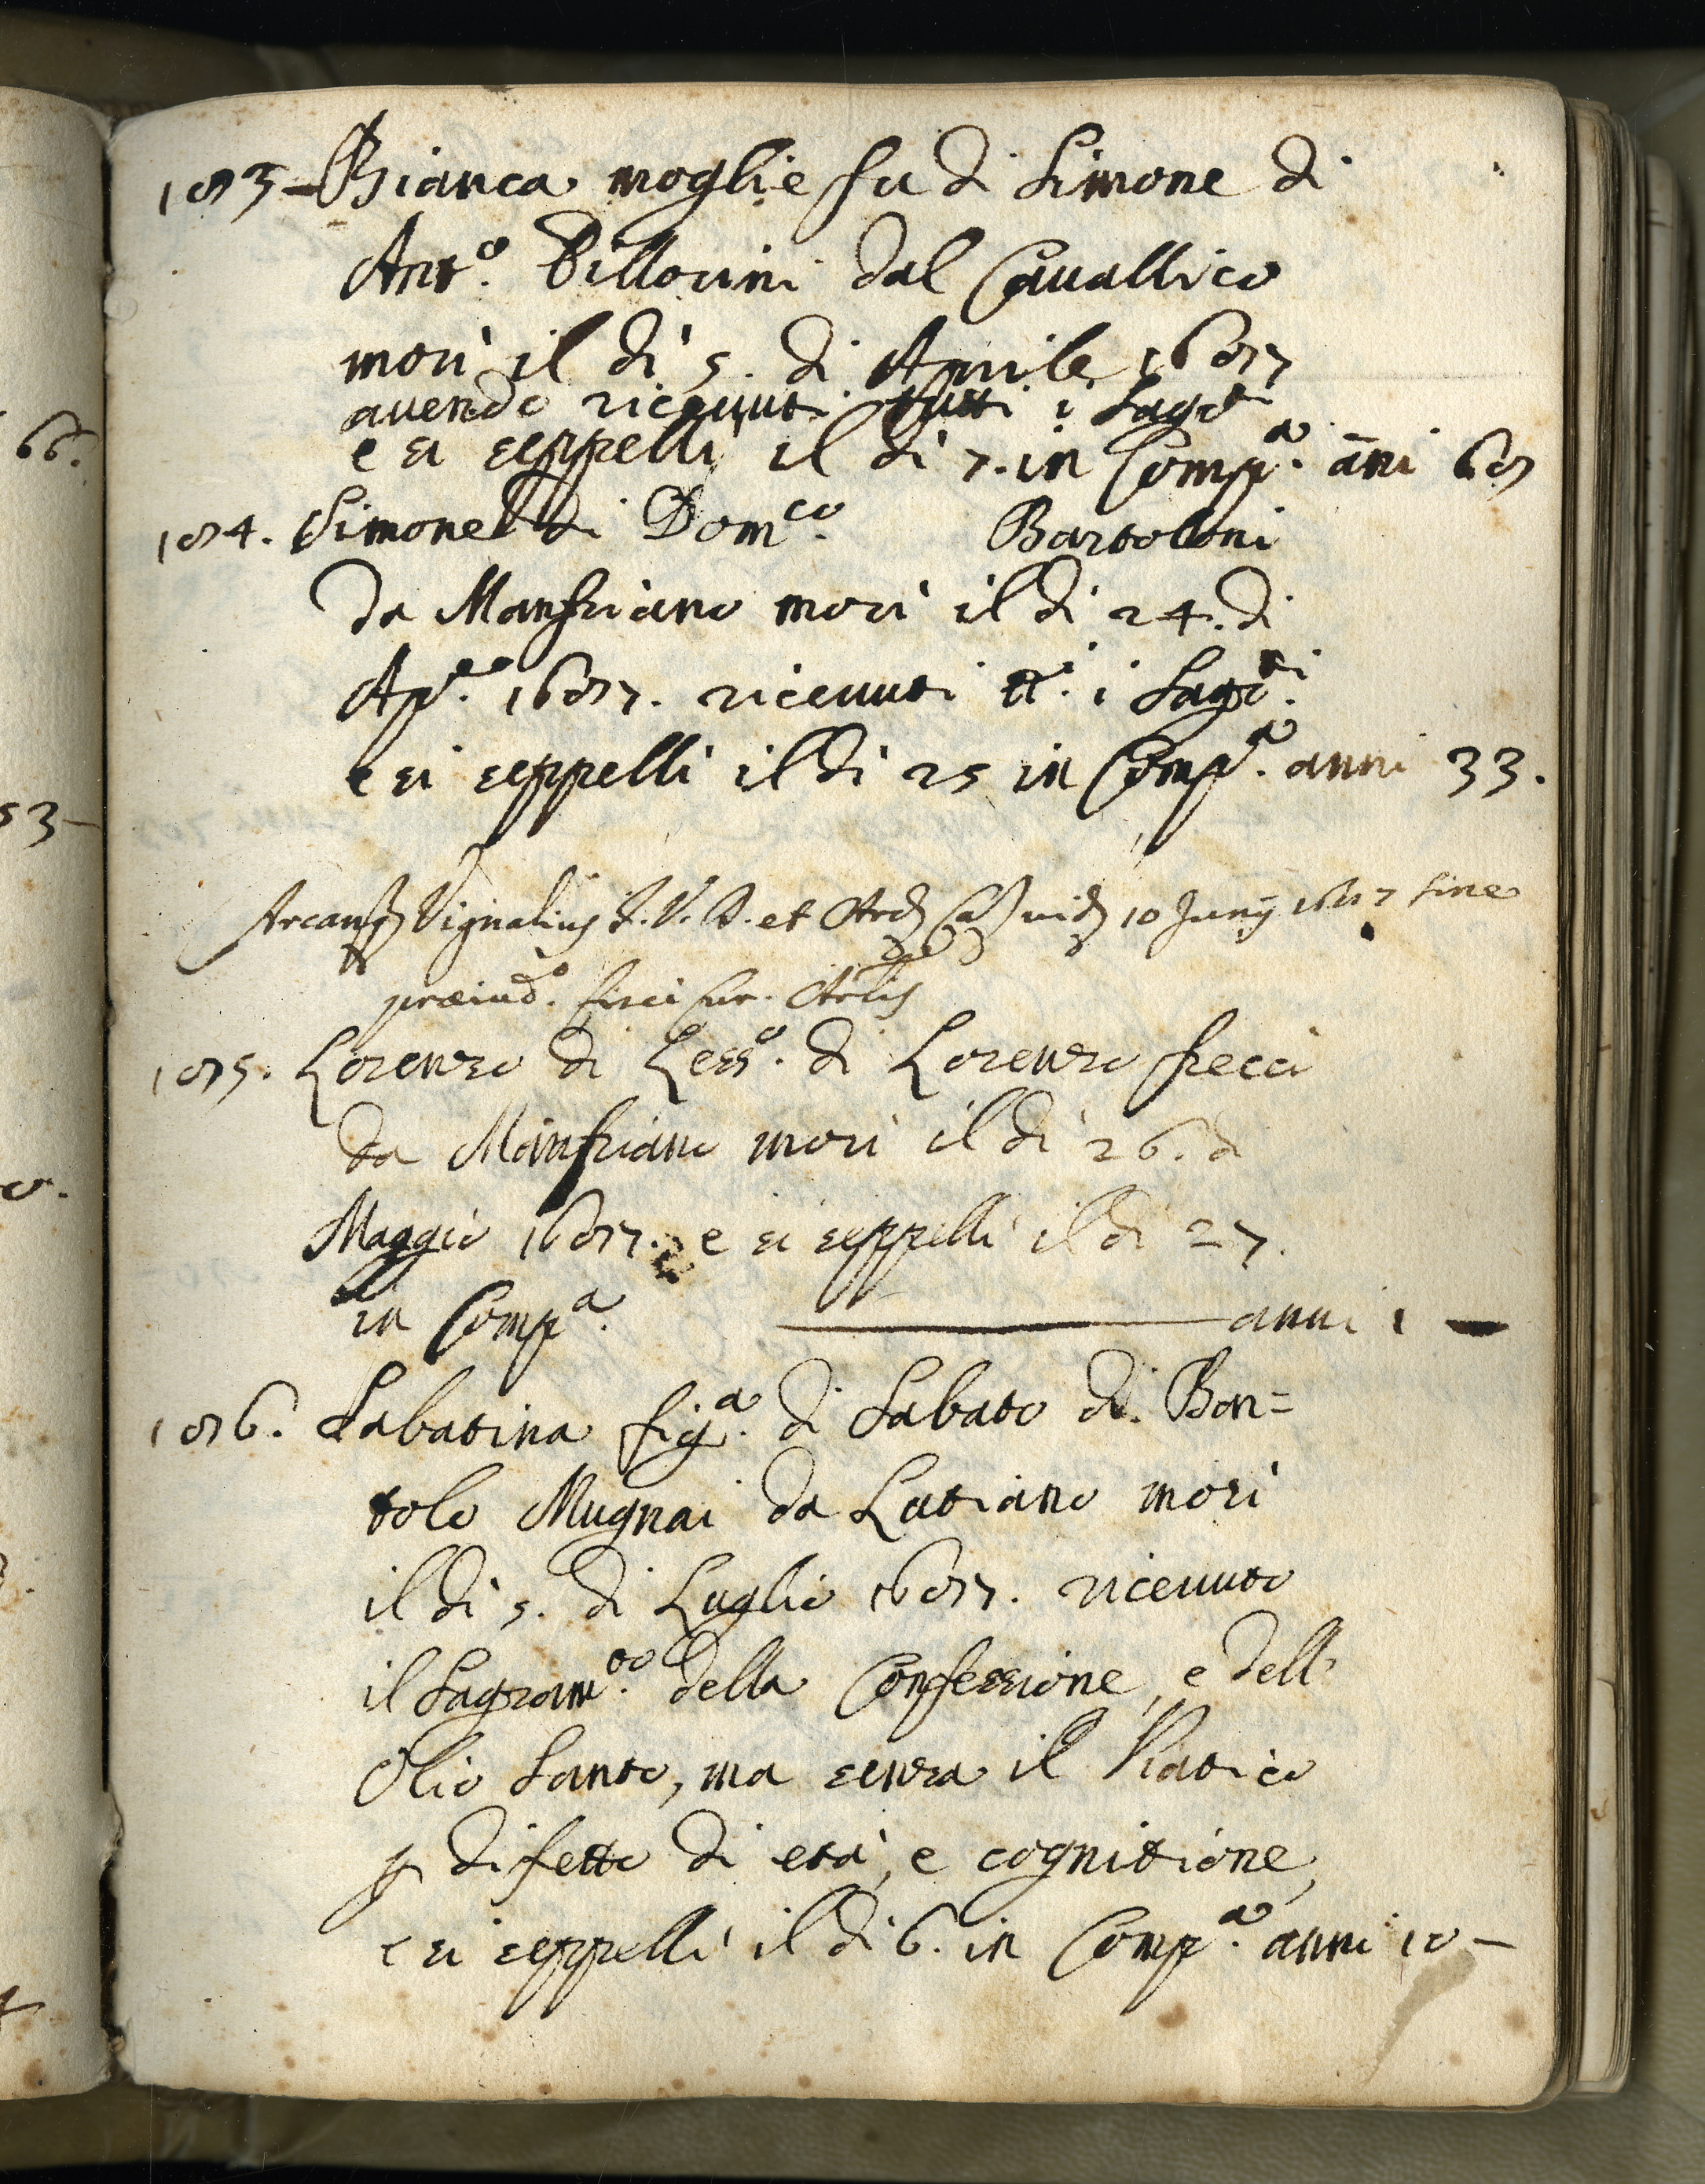 66.
53-
183 - Bianca moglie fu di Simone di
Ant.º Billorini dal Cavallico
morì il dì 5. di Aprile 1687
avendo ricevuti tutti i Sagti
e si seppellì il dì 7. in Comp.ª āni 68
184. Simone di Dom.co Bartoloni
da Manfriano morì il dì 24. di
Ap.e 1687. ricevuti tt.i i Sagti.
e si seppellì il dì 25 in Comp.ª anni 33.
Vignalius J. V. D. et 10 Junij 1687 sine
præiud.º fisci
185. Lorenzo di Less.º di Lorenzo frecci
da Manfriano morì il dì 26. di
Maggio 1687. e si seppellì il dì 27.
in Comp.ª ——— anni 1 -
186. Sabatina fig.ª di Sabato di Bar=
tolo Mugnai da Lutiano morì
il dì 5. di Luglio 1687. ricevuto
il Sagram.to della Confessione, e dell'
Olio Santo, ma senza il Viatico
p difetto di età, e cognitione,
e si seppellì il dì 6. in Comp.ª anni 10 -